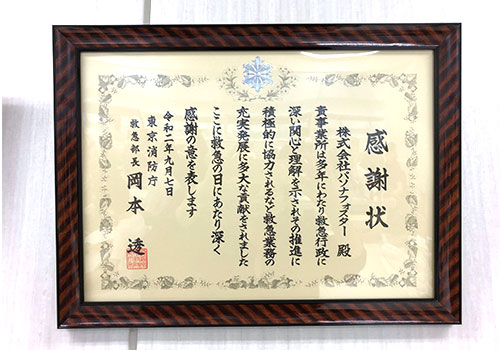 感謝状
株式会社パソナフォスター 殿
貴事業所は多年にわたり救急行政に
深い関心と理解を示されその推進に
積極的に協力されるなど救急業務の
充実発展に多大な貢献をされました
ここに救急の日にあたり深く
感謝の意を表します
令和二年九月七日
東京消防庁
救急部長 岡本 透